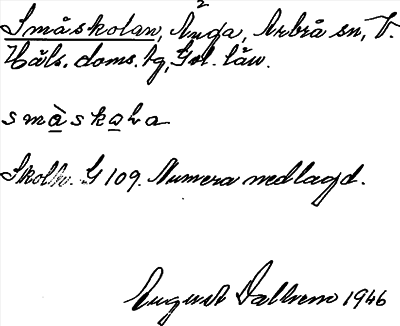 Småskolan, Änga, Arbrå sn, V.
Häls. doms. tg, Gvl. län.
smàskola
Skolh. G 109. Numera nedlagd.
August Dallrem 1946